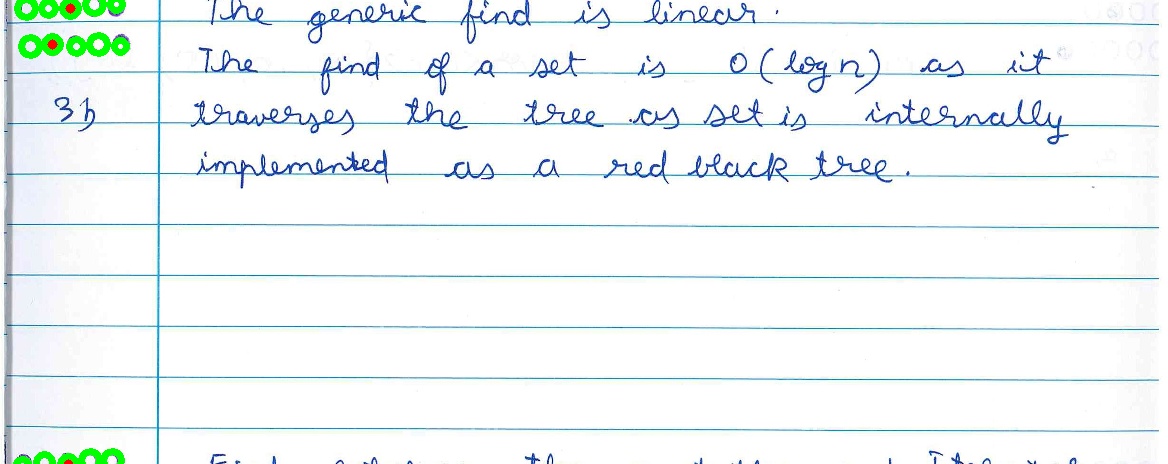 The generic find is linear.
The find of a set is O(log n) as it
3b traverses the tree as set is internally
implemented as a red black tree.